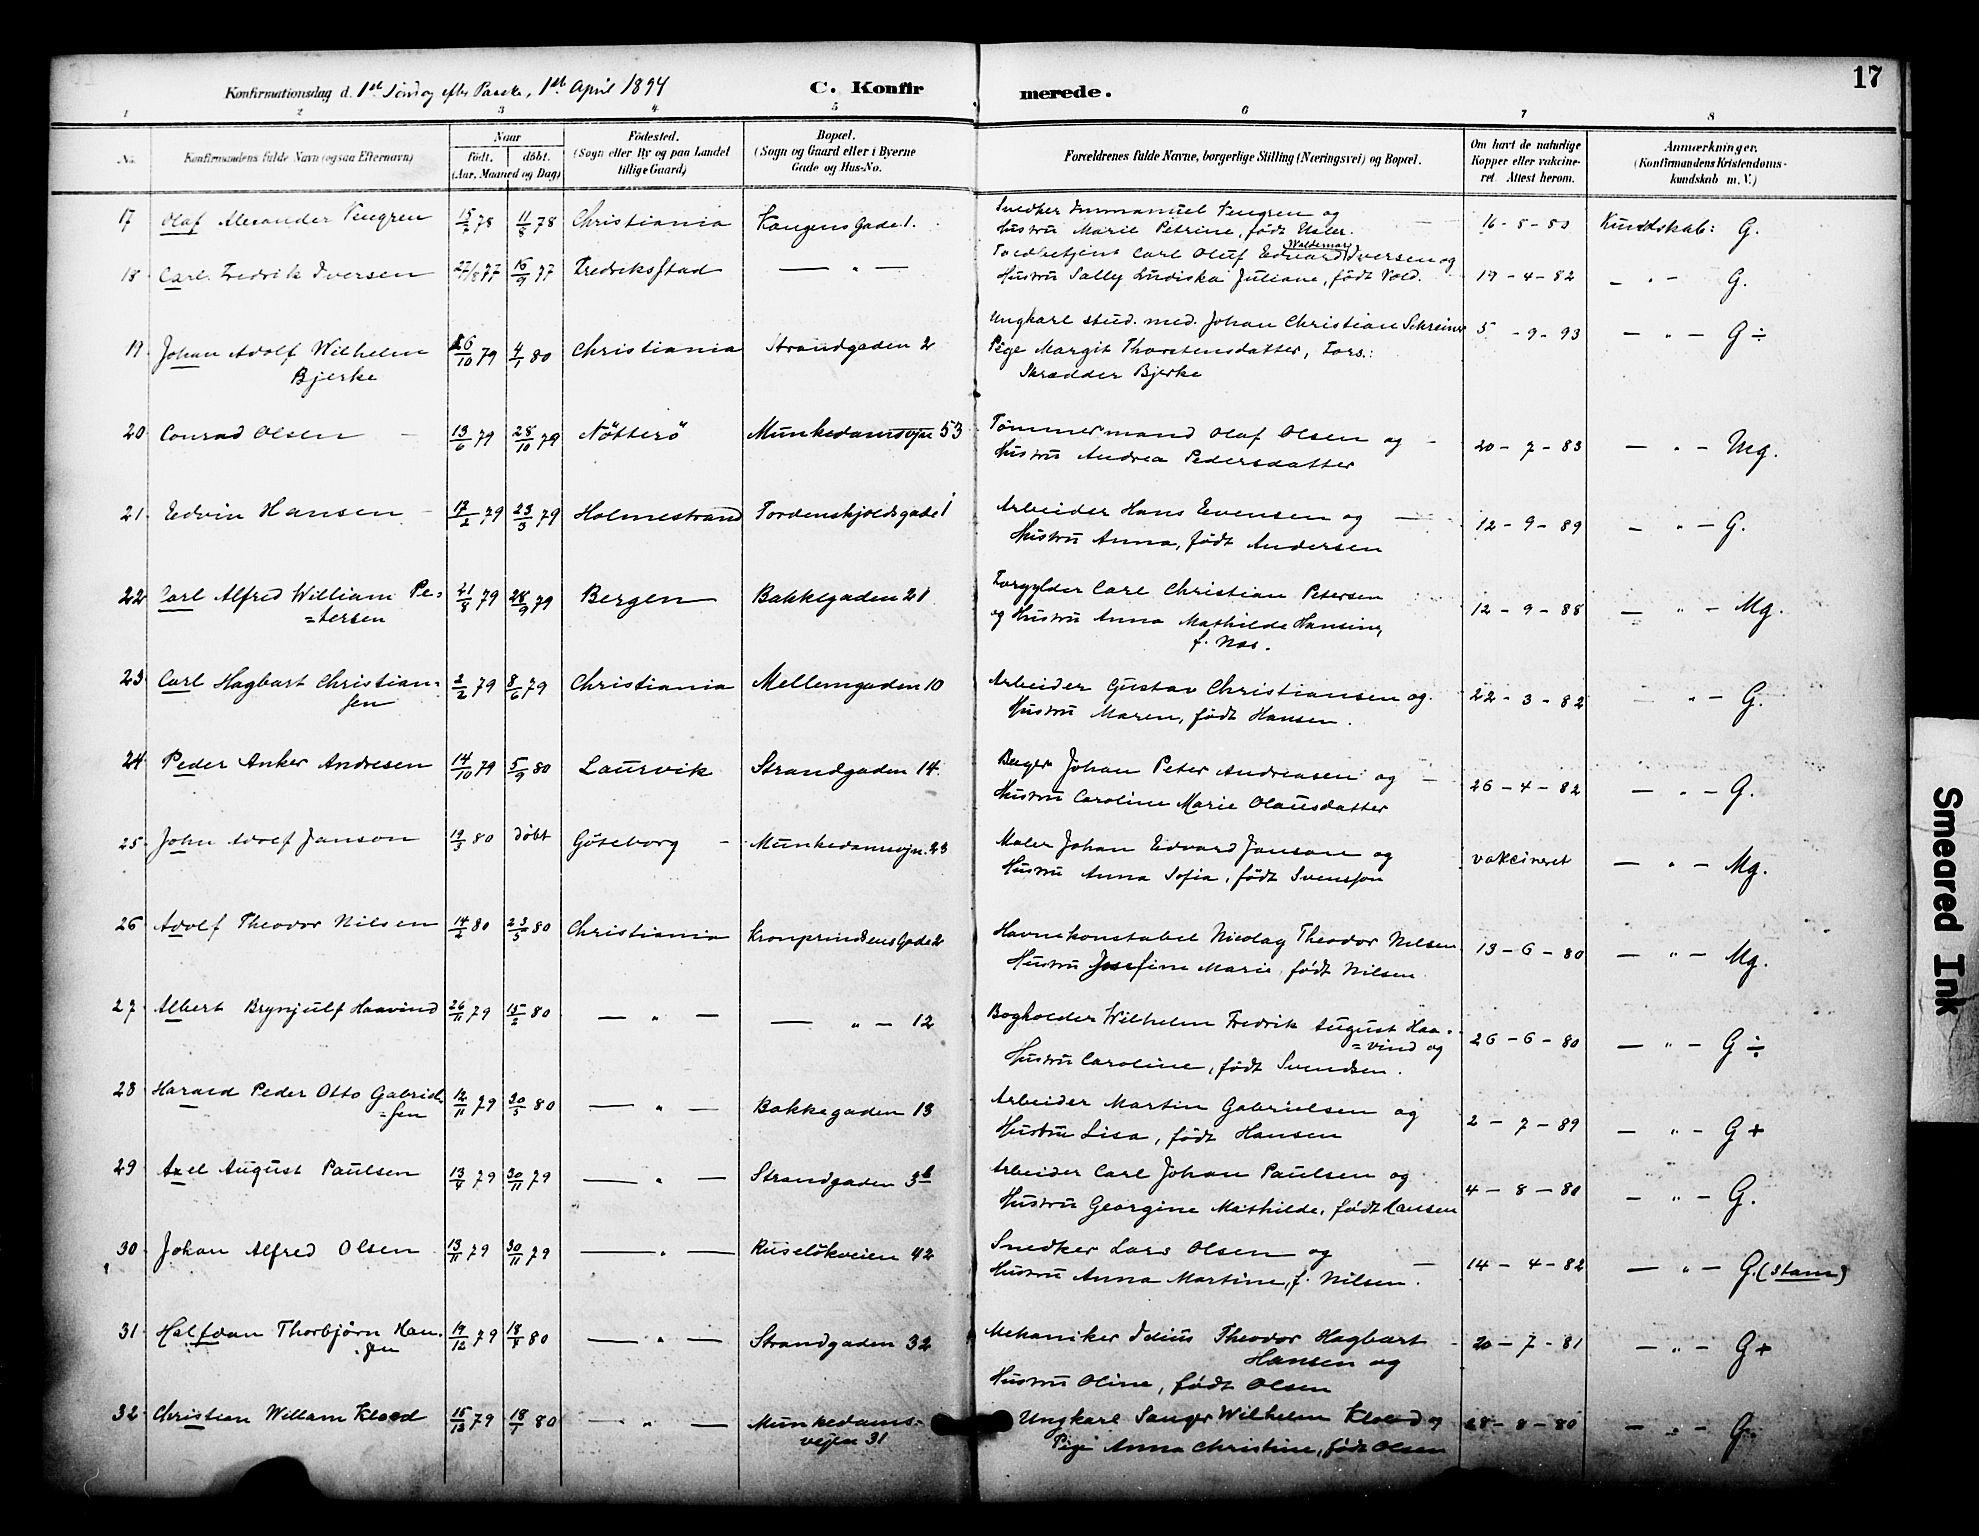 17
Konfirmationsdag d. 1st Söndag efter Paaske, 1st April 1894
C. Konfirmerede.
1 2 3 4 5 6 7 8
No.
Konfirmandens fulde Navn (ogsaa Efternavn)
Naar
födt. döbt.
(Aar, Maaned og Dag)
Födested.
(Sogn eller By og paa Landet
tillige Gaard)
Bopæl.
(Sogn og Gaard eller i Byerne
Gade og Hus-No.
Forældrenes fulde Navne, borgerlige Stilling (Næringsvei) og Bopæl.
Om havt de naturlige
Kopper eller vakcine-
ret. Attest herom.
Anmærkninger.
(Konfirmandens Kristendoms-
kundskab m. V.)
17 Olaf Alexander Vengren 15/7 78 11/8 78 Christiania Kongens Gade 1. Snedker Immanuel Vengren og 16-8-83 Kundskab: G.
Hustru Marie Petrine, født
18 Carl Fredrik Iversen 27/8 77 16/9 77 Fredriksstad — " — Toldbetjent Carl Oluf Edvard Waldemar Iversen og
Hustru Sally Ludiska Juliane, født Vold. 17-4-82 — " — G.
19 Johan Adolf Wilhelm 26/10 79 4/1 80 Christiania Strandgaden 2 Ungkarl stud. med. Johan Christian Schreiner 5-9-93 — " — G ÷
Bjerke Pige Margit Thorstensdatter, Fors.:
Skrædder Bjerke
20 Conrad Olsen 13/6 79 28/10 79 Nötterö Munkedamsvejn 53 Tømmermand Olaf Olsen og 20-7-83 — " — Mg.
Hustru Andrea Pedersdatter
21 Edvin Hansen 17/2 79 23/3 79 Holmestrand Tordenskjoldsgade 1 Arbeider Hans Evensen og 12-9-89 — " — G.
Hustru Anna, født Andersen
22 Carl Alfred William Pe- 21/8 79 28/9 79 Bergen Bakkegaden 21 Forgylder Carl Christian Petersen 12-9-88 — " — Mg.
=tersen og Hustru Anna Mathilde Hansine,
f. Nos.
23 Carl Hagbart Christian- 2/2 79 8/6 79 Christiania Mellemgaden 10 Arbeider Gustav Christiansen og 22-3-82 — " — G.
sen Hustru Maren, født Hansen.
24 Peder Anker Andresen 14/10 79 5/9 80 Laurvik Strandgaden 14. Bager Johan Peter Andreasen og 26-4-82 — " — G.
Hustru Caroline Marie Olausdatter
25 John Adolf Janson 19/3 80 döbt Göteborg Munkedamsvejn. 23 Maler Johan Edvard Janson og vakcineret — " — Mg.
Hustru Anna Sofia, født Svensson
26 Adolf Theodor Nilsen 14/2 80 23/5 80 Christiania Kronprindsens Gade 2 Havnekonstabel Nicolay Theodor Nilsen 13-6-80 — " — Mg.
Hustru Josefine Marie, født Nilsen
27 Albert Brynjulf Haavind 26/11 79 15/2 80 — " — — " — 12 Bogholder Wilhelm Fredrik August Haa- 26-6-80 — " — G ÷
=vind og
Hustru Caroline, født Svendsen.
28 Harald Peder Otto Gabriel- 12/11 79 30/5 80 — " — Bakkegaden 13 Arbeider Martin Gabrielsen og 2-7-89 — " — G +
=sen Hustru Lisa, født Hansen
29 Axel August Paulsen 13/4 79 30/11 79 — " — Strandgaden 3b Arbeider Carl Johan Paulsen og 4-8-80 — " — G.
Hustru Georgine Mathilde, født Larsen
30 Johan Alfred Olsen 13/11 79 30/11 79 — " — Ruselökveien 42 Snedker Lars Olsen og 14-4-82 — " — G. (stam)
Hustru Anna Martine, f. Nilsen.
31 Halfdan Thorbjörn Han- 19/12 79 18/4 80 — " — Strandgaden 32 Mekaniker Idius Theodor Hagbart 20-7-81 — " — G +
sen Hansen og
Hustru Oline, født Olsen
32 Christian Willam Kloed 15/12 79 18/1 80 — " — Munkedams- Ungkarl Sanger Wilhelm Kloed og 28-8-80 — " — G.
vejen 31 Pige Anna Christine, født Olsen
Smeared Ink